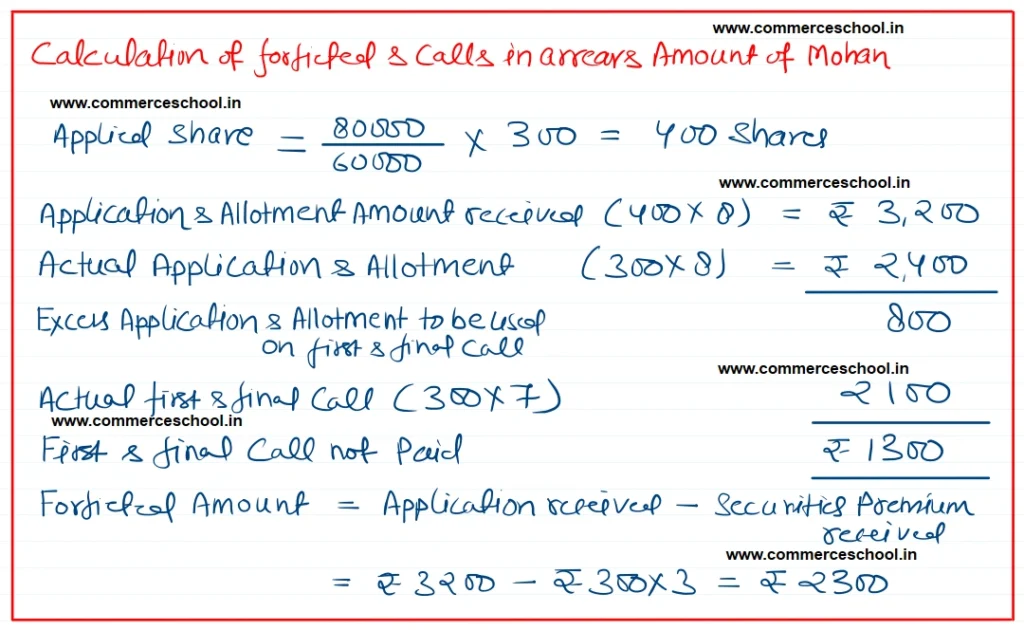 www.commerceschool.in
Calculation of forficted & Calls in arrears Amount of Mohan
www.commerceschool.in
Applied Share = 80000/60000 × 300 = 400 Shares
www.commerceschool.in
Application & Allotment Amount received (400×8) = ₹ 3,200
Actual Application & Allotment (300×8) = ₹ 2,400
Excess Application & Allotment to be used 800
on first & final Call
www.commerceschool.in
Actual first & final Call (300×7) 2100
www.commerceschool.in
First & final Call not Paid ₹ 1300
Forficted Amount = Application received – Securities Premium
received
www.commerceschool.in
= ₹ 3200 – ₹ 300×3 = ₹ 2300